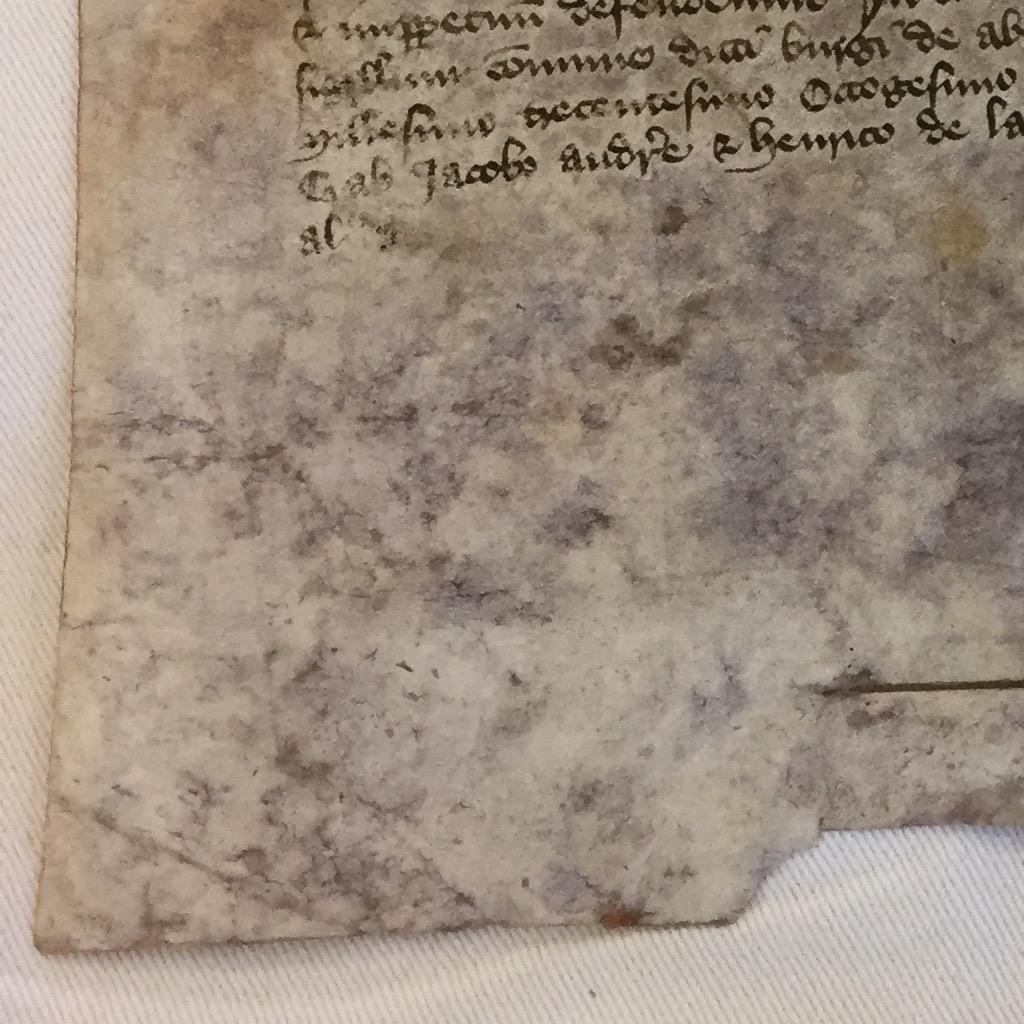 & imppetuū defendemus
sigillum cōmune dicti burgi de ab
millesimo trecentesimo Octogesimo
Jacobo andr̄e & henrico de la